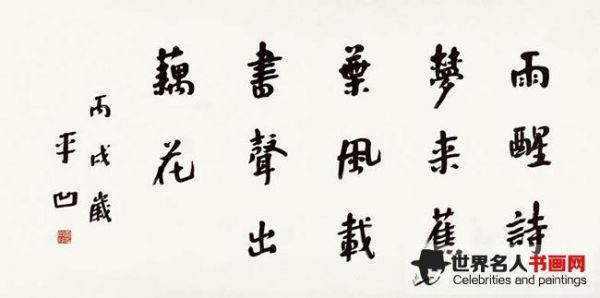 雨醒詩
夢来蕉
葉風載
書聲出
藕花
丙戌歲
平凹
世界名人书画网
Celebrities and paintings